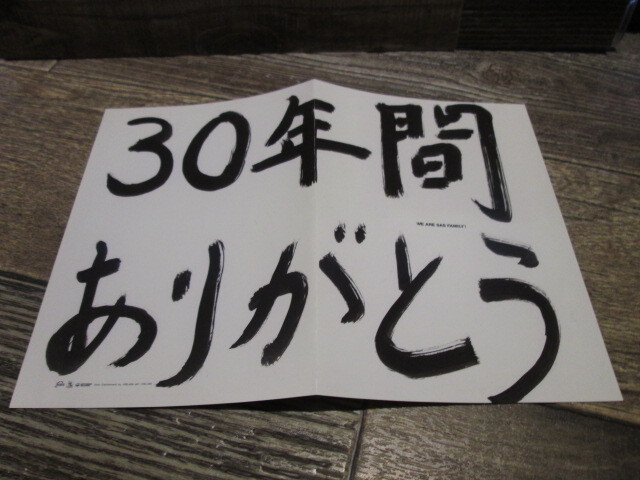 30年間
WE ARE SAN FAMILY!
ありがとう